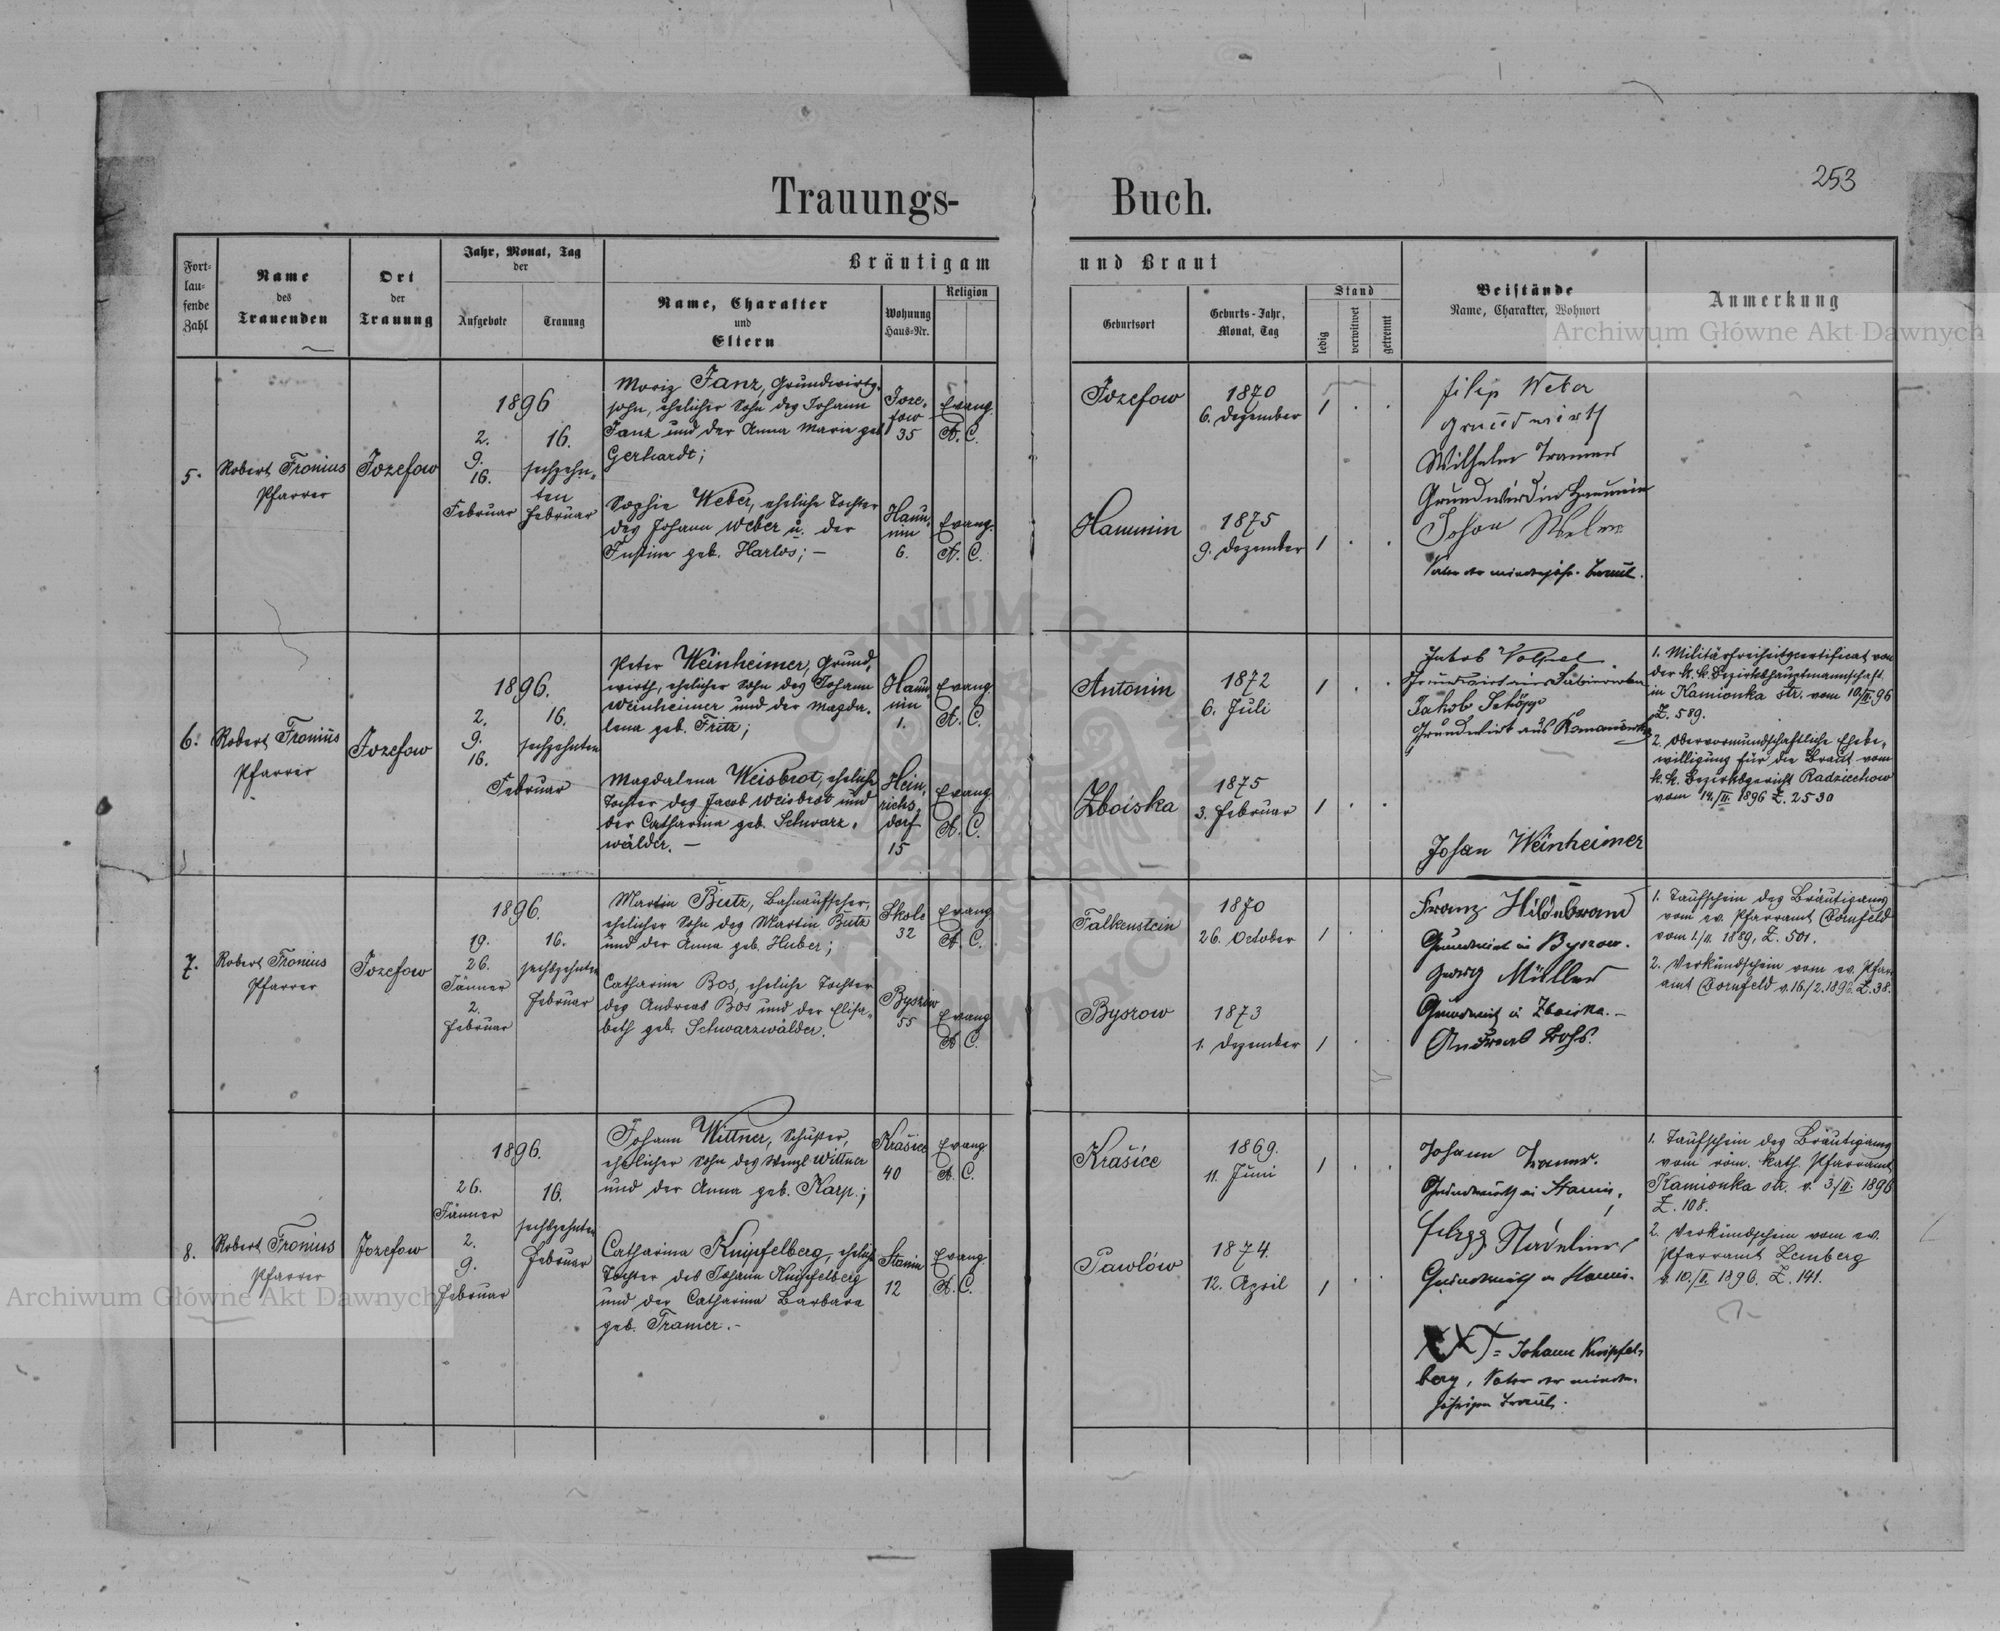 253
Trauungs-Buch.
Fort-
lau-
fende
Zahl
Name
des
Trauenden
Ort
der
Trauung
Jahr, Monat, Tag
der
Aufgebote
Trauung
Bräutigam und Braut
Name, Charakter
und
Eltern
Wohnung
Haus-Nr.
Religion
Geburtsort
Geburts-Jahr,
Monat, Tag
Stand
ledig
verwitwet
getrennt
Beistände
Name, Charakter, Wohnort
Anmerkung
5.
Robert Fronius
Pfarrer
Jozefow
1896
2.
9.
16.
Februar
16.
sechzehn-
ten
Februar
Moriz Janz, Grundwirths-
sohn, ehelicher Sohn des Johann
Janz und der Anna Marie geb
Gerhardt;
Joze-
fow
35
Evang.
A. C.
Jozefow
1870
6. Dezember
1
Sophie Weber, eheliche Tochter
des Johann Weber u. der
Justine geb. Harlos; —
Hanu-
nin
6.
Evang.
A. C.
Hanunin
1875
9. Dezember
1
Filip Weber
Grundwirth
Wilhelm Tramer
Grundwird in Hanunin
Johan Weber
Vater der minderjähr. Braut.
6.
Robert Fronius
Pfarrer
Jozefow
1896.
2.
9.
16.
16.
sechzehnten
Februar
Peter Weinheimer, Grund-
wirth, ehelicher Sohn des Johann
Weinheimer und der Magda-
lena geb. Fritz;
Hanu-
nin
1.
Evang
A. C.
Antonin
1872
6. Juli
1
Magdalena Weisbrot, eheliche
Tochter des Jacob Weisbrot und
der Catharina geb. Schwarz-
wälder. —
Hein-
richs-
dorf
15
Evang
A. C.
Zboiska
1875
3. Februar
1
Jakob
Jakob Schöpp
Grundwirt aus
Johan Weinheimer
1. Militärfreiheitscertificat von
der k. k. Bezirkshauptmannschaft
in Kamionka str. vom 10/II 96
Z. 589.
2. Obervormundschaftliche Ehebe-
willigung für die Braut vom
k. k. Bezirksgericht Radziechow
vom 14./II. 1896 Z. 2530
7.
Robert Fronius
Pfarrer
Jozefow
1896.
19.
26.
Jänner
2.
Februar
16.
sechszehnten
Februar
Martin Butz, Bahnaufseher,
ehelicher Sohn des Martin Butz
und der Anna geb. Huber;
Skole
32
Evang
A. C.
Falkenstein
1870
26. October
1
Catharina Bos, eheliche Tochter
des Andreas Bos und der Elisa-
beth geb. Schwarzwälder.
55
Evang
A. C.
Bysrow
1873
1. Dezember
1
Franz Hildebrand
Grundwirt in Bysrow.
Georg Müller
Grundwirt in Zboiska. —
Andreas Bohs.
1. Taufschein des Bräutigams
vom ev. Pfarramt Dornfeld
vom 1./II. 1889, Z. 501.
2. Verkündschein vom ev. Pfarr
amt Dornfeld v. 16./2. 1896 Z. 38.
8.
Robert Fronius
Pfarrer
Jozefow
1896.
26.
Jänner
2.
9.
Februar
16.
sechszehnten
Februar
Johann Wittner, Schuster,
ehelicher Sohn des Wenzl Wittner
und der Anna geb. Karp.;
Krašice
40
Evang.
A. C.
Krašice
1869.
11. Juni
1
Catharina Knipfelberg, ehelich
Tochter des Johann Knipfelberg
und der Catharina Barbara
geb. Tramer. -
Stanin
12
Evang.
A. C.
Pawlów
1874.
12. April
1
Johann Tramer.
Grundwirth in Stanin,
Grundwirth in Stanin.
XXX = Johann Knipfel-
berg, Vater der minder-
jährigen Braut.
1. Taufschein des Bräutigams
vom röm. kath. Pfarramt
Kamionka str. v. 3./II. 1896
Z. 108.
2. Verkündschein vom ev.
Pfarramt Lemberg
v. 10./II. 1896. Z. 141.
Archiwum Główne Akt Dawnych
Archiwum Główne Akt Dawnych